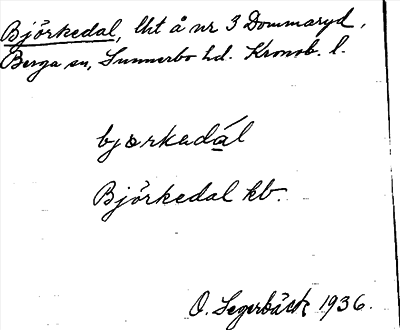 Björkedal, lht å nr 3 Dommaryd,
Berga sn, Sunnerbo hd. Kronob. l.
bjərkədál
Björkedal kb.
O. Segerbäck 1936.